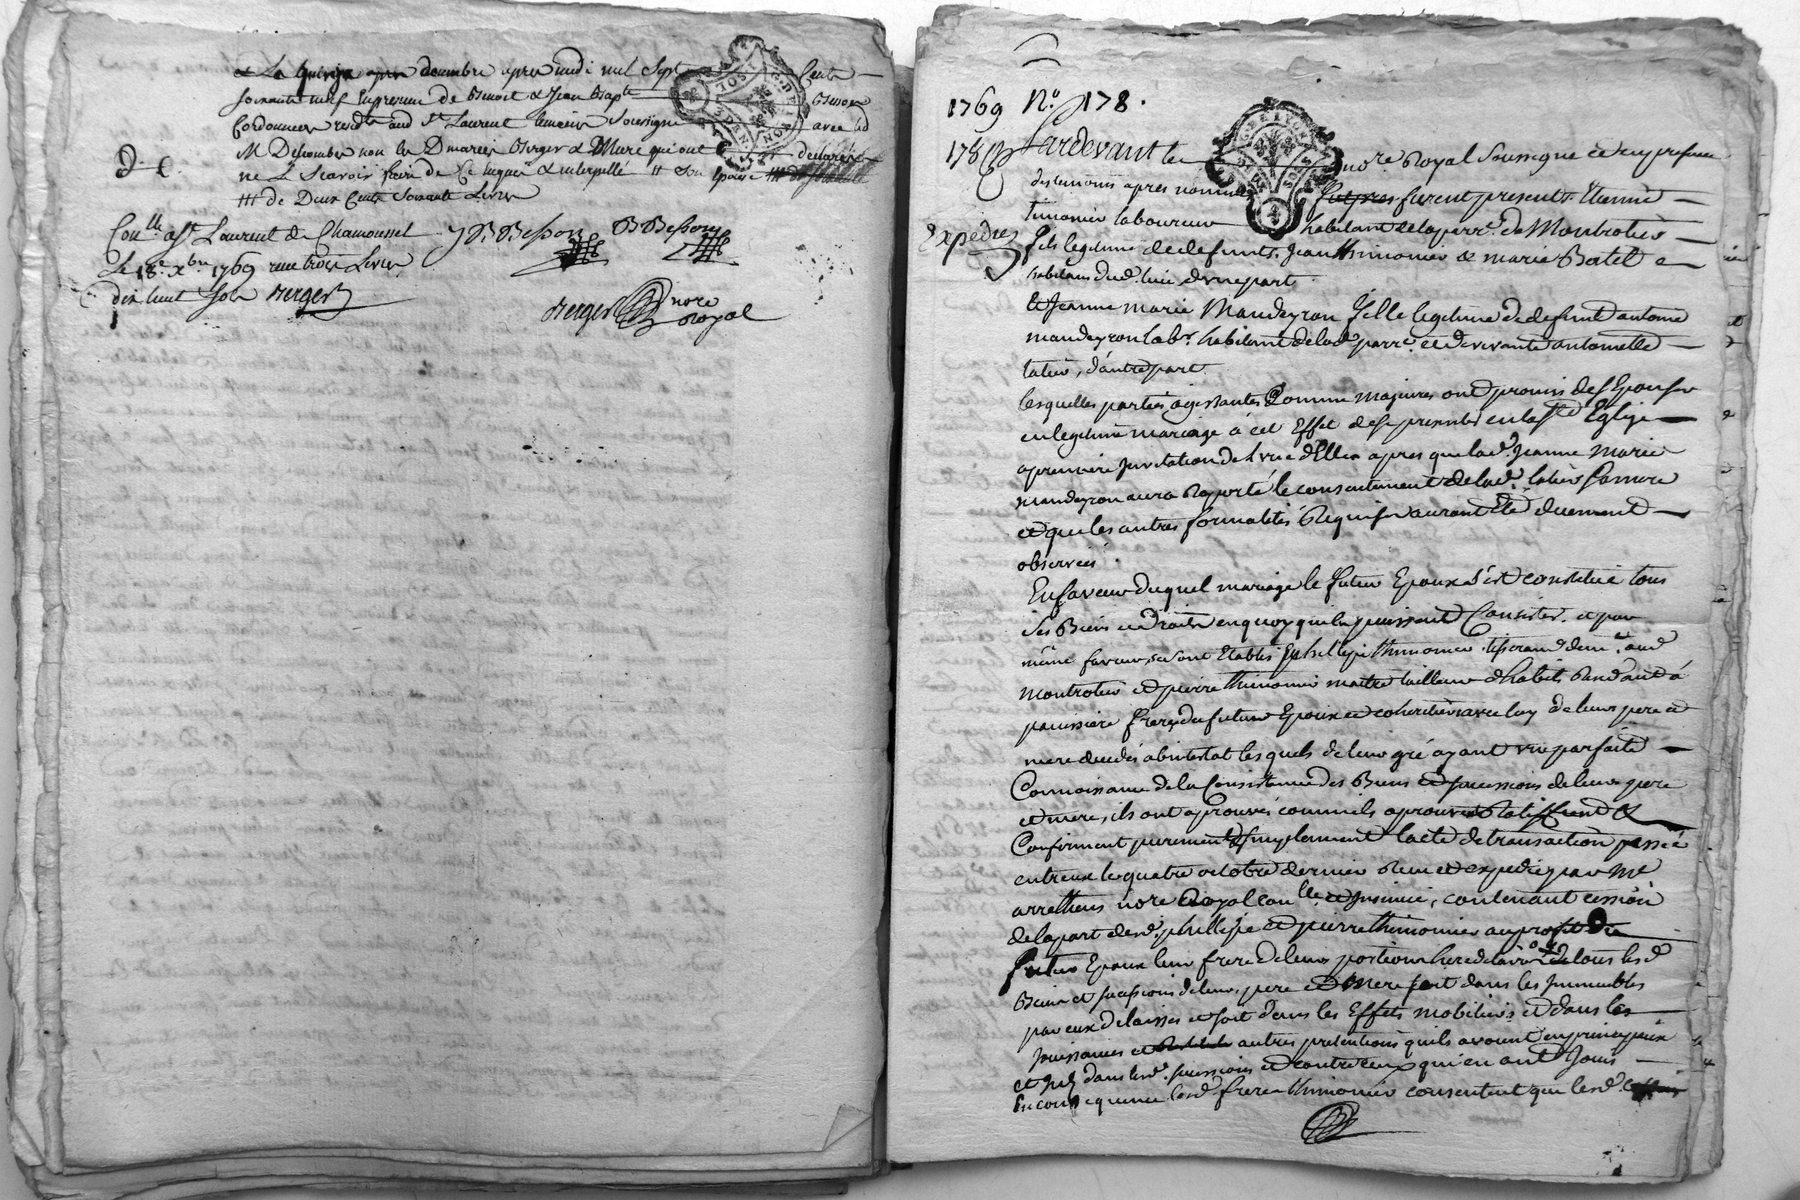 & Le quinze decembre apres midi mil sept Cents
soixante neuf En presence de Benoit & Jean Bapte Besson
Cordonniers residts aud St Laurent temoins Soussignés avec led
M Descombes non les D mariés Berger & Muré qui ont declarés
ne Scavoir faire de Ce requis & interpellé # Son Epouse
de Deux Cents Soixante Livres
Conllé a St Laurent de Chamousset JB Besson B Besson
Le 18e xbre 1769 recu trois Livres
dix huit Sols Berger
Berger nore Royal
1769 No 178.
178 Pardevant le nore Royal Soussigné et en presence
des temoins apres nommés furent presents Etienne
timonier laboureur habitant de la parr. de Montrotier
Expédiée
fils legitime de defunts Jean thimonier & marie Batel
habitans dud. lieu d'une part
Et Jeanne marie Mandeyron fille legitime de defunt antoine
mandeyron labr. habitant de lad. parre. et de vivante antoinette
tatier, d'autre part.
lesquelles parties agissantes Comme majeures ont promis de s'Epouser
en legitime mariage à cet Effet de se presenter en la Ste Eglise
a premiere Invitation de l'une d'Elles apres que lad. Jeanne Marie
mandeyron aura Raporté le consentement de lad. tatier Sa mere
et que les autres formalités Requises auront Eté duement
observées.
En faveur duquel mariage le futur Epoux s'est constitué tous
Ses Biens et Droits en quoy qu'ils puissent Consister. et par
même faveur se sont Etablis Philippe thimonier tisserand demt. aud
montrotier et pierre thimonier maitre tailleur d'habits Residant à
paurssiere freres du futur Epoux et coheritiers avec luy de leurs pere et
mere decedés abintestat lesquels de leur gré ayant une parfaite
Connoissance de la Consistance des Biens et successions de leurs pere
et mere, ils ont aprouvés comme ils aprouvent Ratiffient &
Confirment purement & simplement l'acte de transaction passé
entr'eux le quatre octobre dernier Reçu et expedié par Me
arrethens nore Royal conllé et Insinué, contenant cession
de la part desd. phillipe et pierre thimonier au profit du
futur Epoux leur frere de leurs portions hereditaires de tous lesd
Biens et successions de leurs pere et Mere soit dans les Immeubles
par eux delaissés et soit dans les Effets mobiliers et dans les
Jouissances et autres pretentions qu'ils avoient en principaux
et dans lesd. successions et contre ceux qui en ont Jouis
En consequence lesd freres thimonier consentent que lesd.